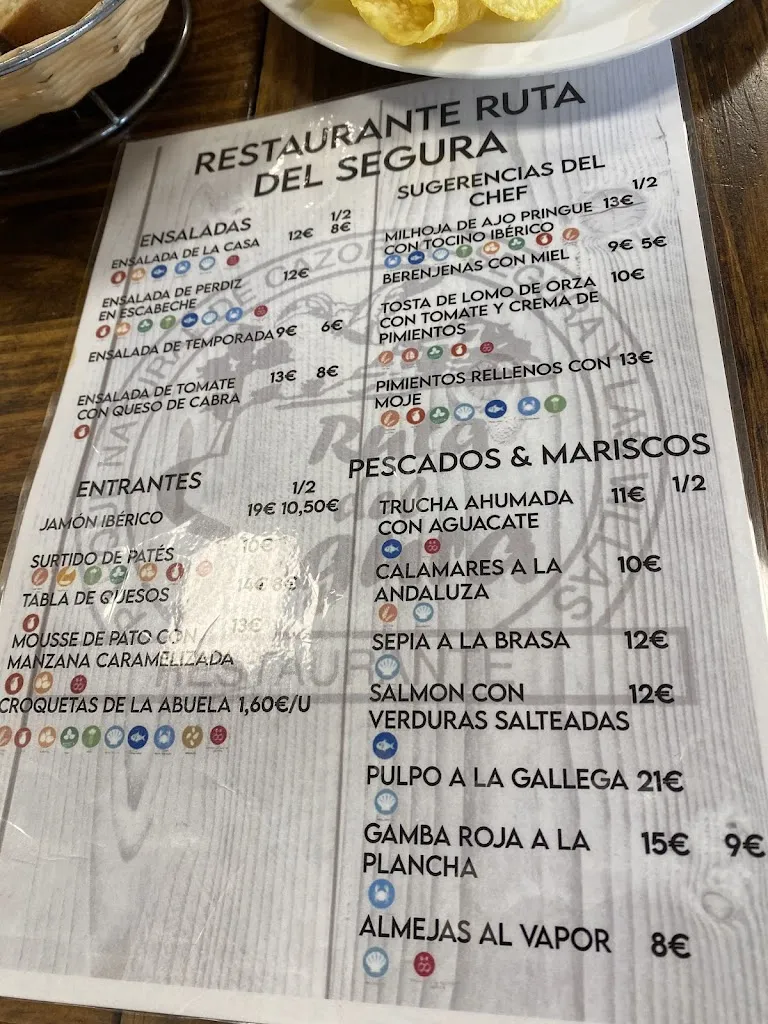 RESTAURANTE RUTA
DEL SEGURA
ENSALADAS
1/2
ENSALADA DE LA CASA 12€ 8€
ENSALADA DE PERDIZ 12€
EN ESCABECHE
ENSALADA DE TEMPORADA 9€ 6€
ENSALADA DE TOMATE 13€ 8€
CON QUESO DE CABRA
ENTRANTES
1/2
JAMÓN IBÉRICO 19€ 10,50€
SURTIDO DE PATÉS 10€
TABLA DE QUESOS 14€ 8€
MOUSSE DE PATO CON 13€
MANZANA CARAMELIZADA
CROQUETAS DE LA ABUELA 1,60€/U
SUGERENCIAS DEL
CHEF
1/2
MILHOJA DE AJO PRINGUE 13€
CON TOCINO IBÉRICO
BERENJENAS CON MIEL 9€ 5€
TOSTA DE LOMO DE ORZA 10€
CON TOMATE Y CREMA DE
PIMIENTOS
PIMIENTOS RELLENOS CON 13€
MOJE
PESCADOS & MARISCOS
1/2
TRUCHA AHUMADA 11€
CON AGUACATE
CALAMARES A LA 10€
ANDALUZA
SEPIA A LA BRASA 12€
SALMON CON 12€
VERDURAS SALTEADAS
PULPO A LA GALLEGA 21€
GAMBA ROJA A LA 15€ 9€
PLANCHA
ALMEJAS AL VAPOR 8€
Ruta
del
RESTAURANTE